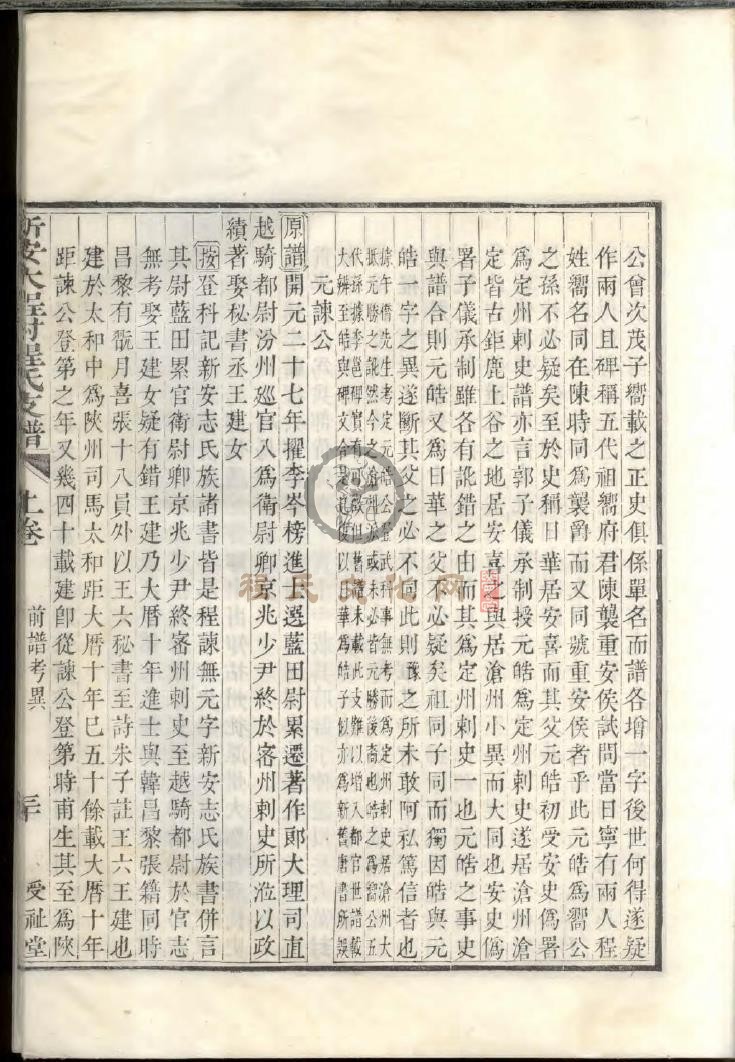 公曾次茂子嚮載之正史俱係單名而譜各增一字後世何得遂疑
作兩人且碑稱五代祖嚮府君陳襲重安侯試問當日寧有兩人程
姓嚮名同在陳時同爲襲爵而又同號重安侯者乎此元皓爲嚮公
之孫不必疑矣至於史稱日華居安喜而其父元皓初受安史僞署
爲定州刺史譜亦言郭子儀承制授元皓爲定州刺史遂居滄州滄
定皆古鉅鹿上谷之地居安喜之與居滄州小異而大同也安史僞
署子儀承制雖各有訛錯之由而其爲定州刺史一也元皓之事史
與譜合則元皓又爲日華之父不必疑矣祖同子同而獨因皓與元
皓一字之異遂斷其父之必不同此則豫之所未敢阿私篤信者也
元諫公
原譜開元二十七年擢李岑榜進士選藍田尉累遷著作郎大理司直
越騎都尉汾州廵官入爲衛尉卿京兆少尹終於密州刺史所涖以政
績著娶秘書丞王建女
按登科記新安志氏族諸書皆是程諫無元字新安志氏族書併言
其尉藍田累官衛尉卿京兆少尹終密州刺史至越騎都尉於官志
無考娶王建女疑有錯王建乃大曆十年進士與韓昌黎張籍同時
昌黎有翫月喜張十八員外以王六秘書至詩朱子註王六王建也
建於太和中爲陝州司馬太和距大曆十年已五十餘載大曆十年
距諫公登第之年又幾四十載建卽從諫公登第時甫生其至爲陝
新安大程村程氏支譜 上卷 前譜考異 受祉堂
程氏文化网